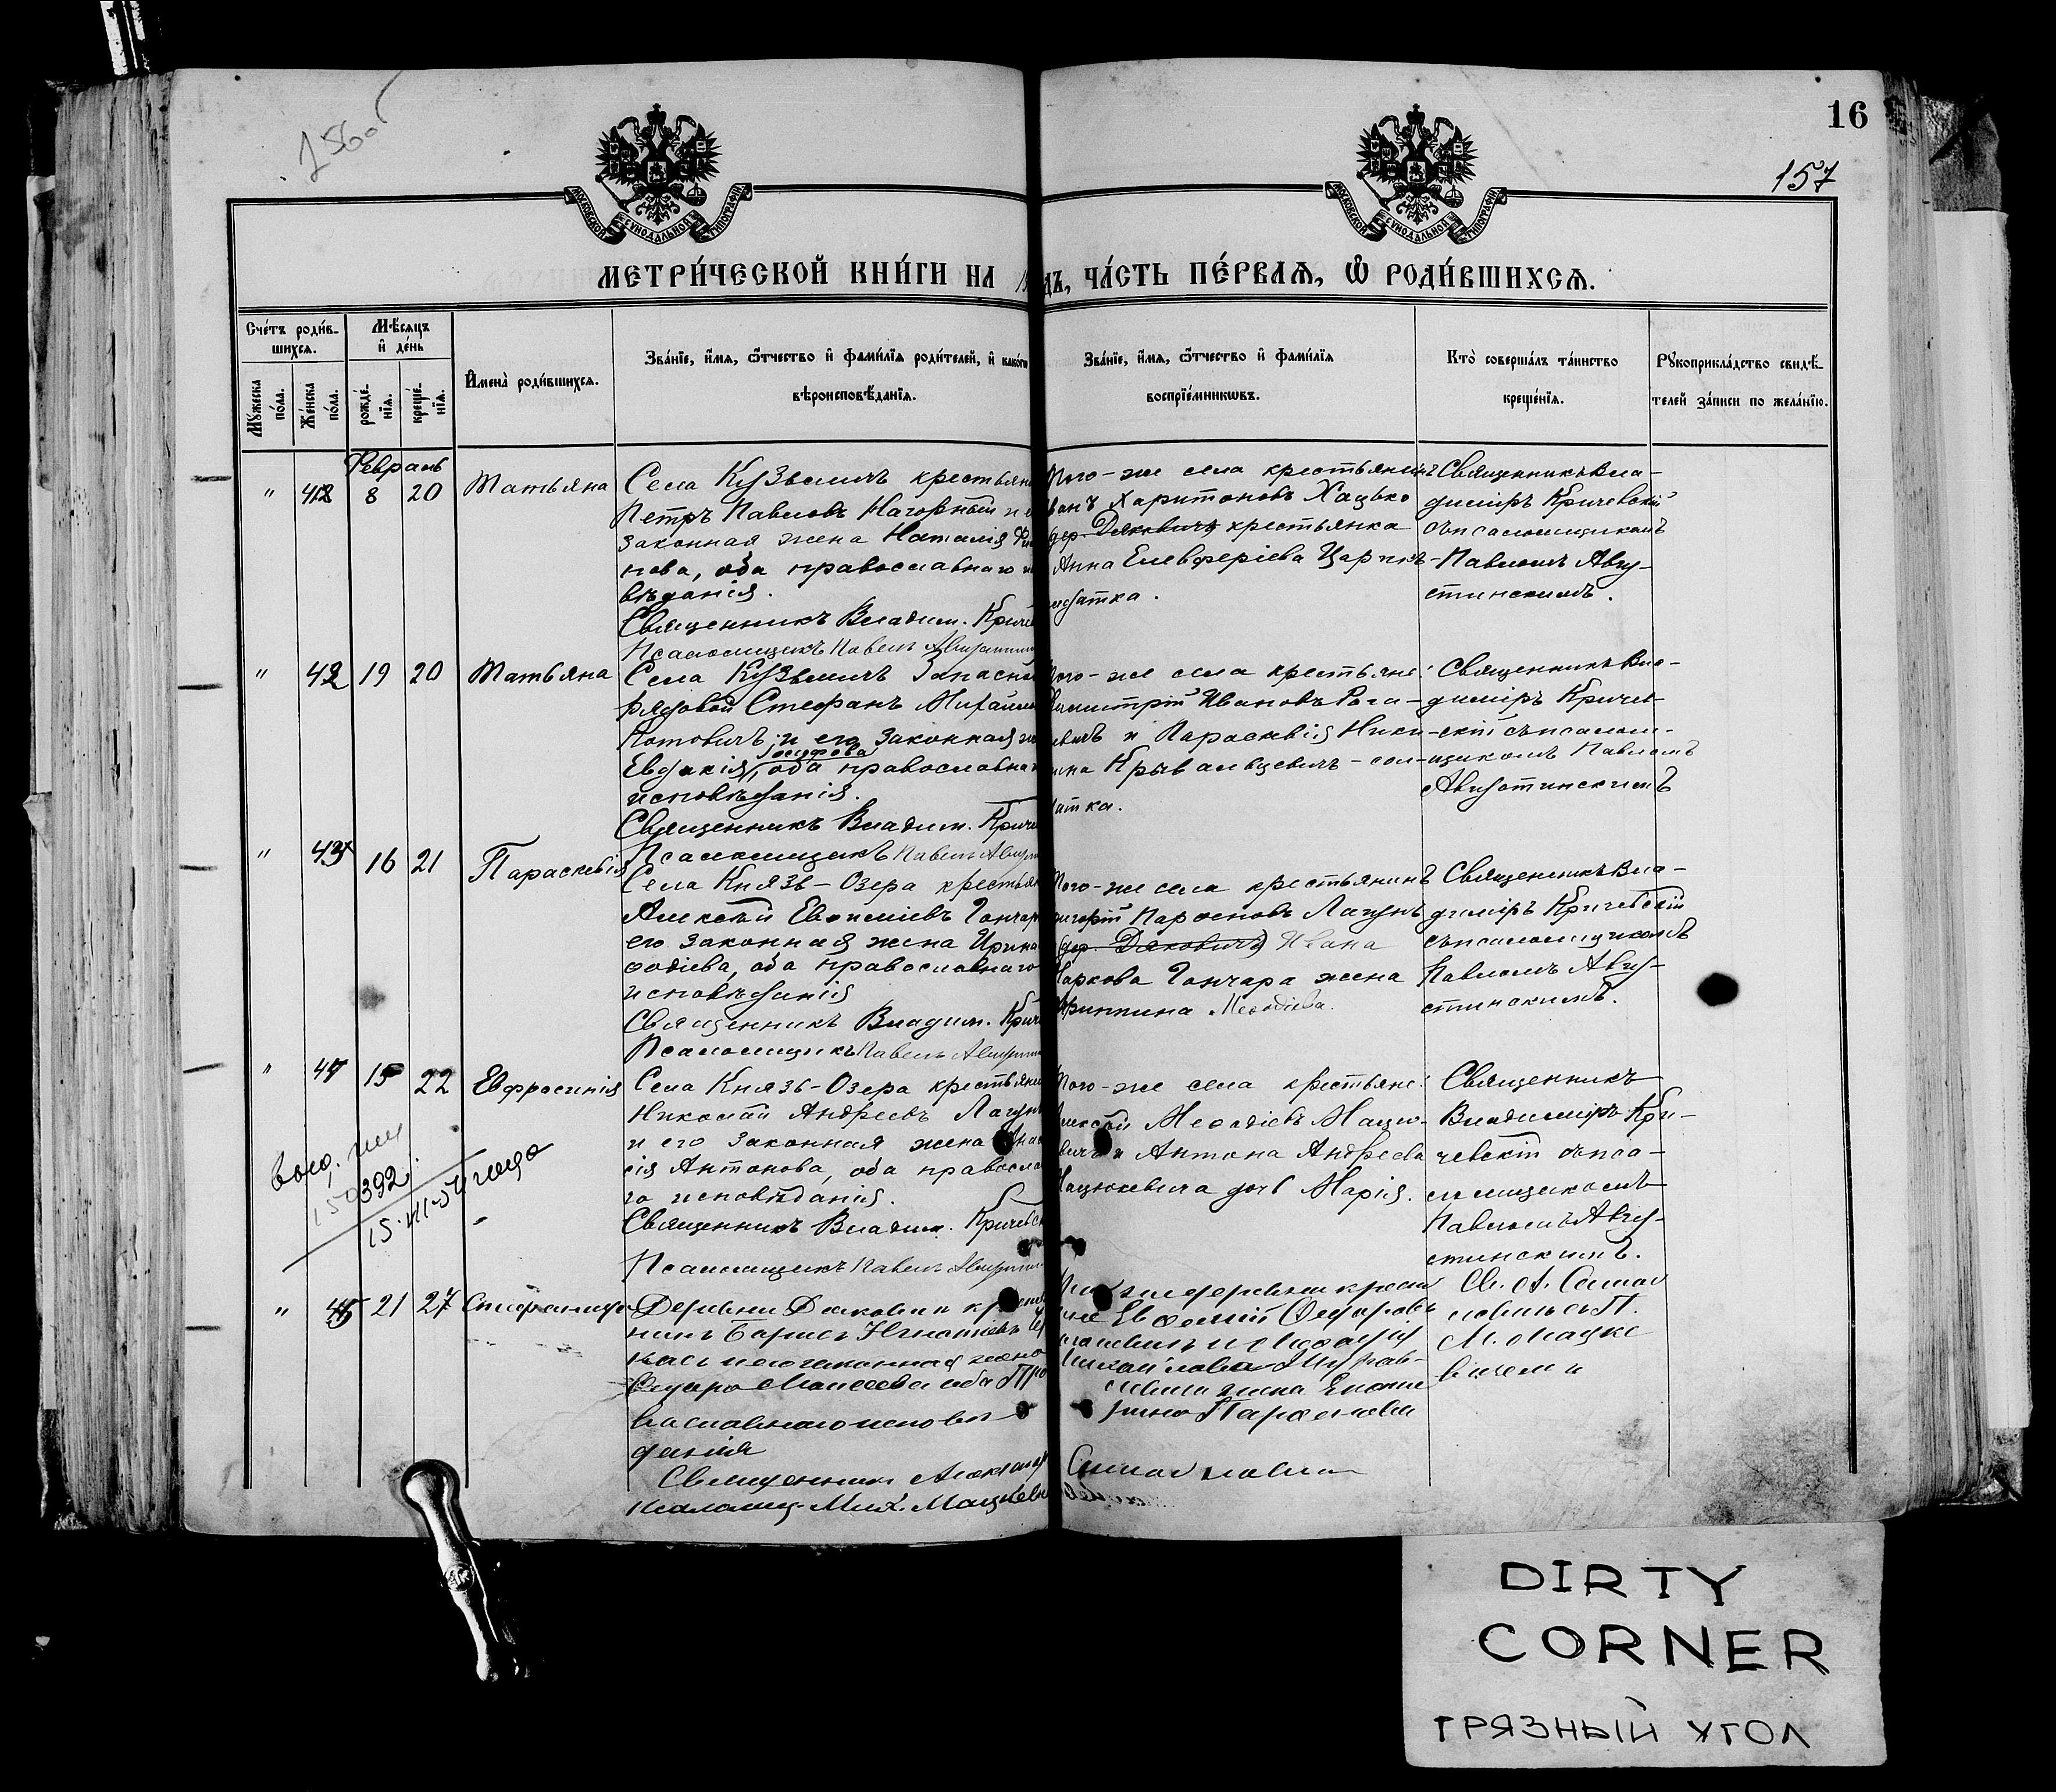 1560
16
157
МОСКОВСКОЙ СѴНОДАЛЬНОЙ ТИПОГРАФІИ
МОСКОВСКОЙ СѴНОДАЛЬНОЙ ТИПОГРАФІИ
МЕТРИ́ЧЕСКОЙ КНИ́ГИ НА ДЪ, ЧА́СТЬ ПЕ́РВАѦ, Ѿ РОДИ́ВШИХСѦ.
Сче́тъ роди́в-
шихся.
Мѣ́сяцъ
и҆ де́нь
Мꙋ́жеска по́ла.
Же́нска по́ла.
рожде́-нїѧ.
креще́-нїѧ.
И҆мена̀ роди́вшихся.
Зва́нїе, и҆́мѧ, ѻ҆́тчество и҆ фами́лїѧ роди́телей, и҆ како́гѡ
вѣроисповѣ́данїѧ.
Зва́нїе, и҆́мѧ, ѻ҆́тчество и҆ фами́лїѧ
воспрїе́мникѡвъ.
Кто̀ соверша́лъ та́инство
креще́нїѧ.
Рꙋкоприкла́дство свидѣ́-
телей за́писи по жела́нїю.
Февраль
" 8 20 Татьяна
Села Кузьмичъ крестьян
Петръ Павловъ Нагорный и е
законная жена Наталія
пова, оба православнаго и
вѣданія.
Священникъ Владим. Криче
Псаломщикъ Павелъ Августин
Того-же села крестьянинъ
ванъ Харитоновъ Хацько
дер. Дяковичъ крестьянка
Анна Елевферіева Царикъ-
солдатка.
Священникъ Вла-
диміръ Кричевскій
съ псаломщикомъ
Павломъ Авгу-
стинскимъ.
" 42 19 20 Татьяна
Села Кузьмичъ Запасной
рядовой Стефанъ Михайло
Котовичъ и его законная ж
Іосифова
Евдокія, оба православна
исповѣданія.
Священникъ Владим. Криче
Псаломщикъ Павелъ Август
Того-же села крестьяне:
Димитрій Ивановъ Рога-
евичъ и Параскевія Ники-
на Крывальцевичъ-сол-
датка.
Священникъ Вла-
диміръ Кричев-
скій съ псалом-
щикомъ Павломъ
Августинскимъ
" 43 16 21 Параскевія
Села Князь-Озера крестьян
Алексѣй Евѳиміевъ Гончар
его законная жена Ирина
ѳодіева, оба православнаго
исповѣданія
Священникъ Владим. Криче
Псаломщикъ Павелъ Августин
Того-же села крестьянинъ
Григорій Парѳеновъ Лагунъ
дер. Дяковичъ Ивана
Маркова Гончара жена
Агриппина Меѳодіева.
Священникъ Вла-
диміръ Кричевскій
съ псаломщикомъ
Павломъ Авгу-
стинскимъ.
" 44 15 22 Евфросинія
Села Князь-Озера крестьянин
Николай Андреевъ Лагун
и его законная жена Анас
сія Антонова, оба правосла
го исповѣданія.
Священникъ Владим. Кричевск
Псаломщикъ Павелъ Августин
Того-же села крестьяне:
Алексѣй Меѳодіевъ Мацю-
кевичъ и Антона Андреева
Мацюкевича дочь Марія.
Священникъ
Владиміръ Кри-
чевскій съ пса-
ломщикомъ
Павломъ Авгу-
стинскимъ.
392
15.III.54 года
" 45 21 27 Стефанида
Деревни Дяковичи крестья
нинъ Борисъ Игнатіевъ
и его законная жена
Ѳедора Моисеева оба Пра
вославнаго исповѣ
данія
Священникъ Александр
Псаломщ. Мих. Мацкеви
Той же деревни крестья
не Евѳимій Ѳедоровъ
Михайлова
жена
Св. А.
съ П.
М. Мацке
вичемъ
DIRTY
CORNER
ГРЯЗНЫЙ УГОЛ